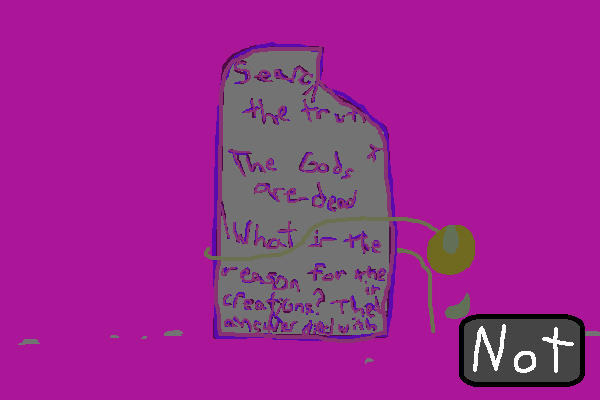 Searc
the trut
The Gods
are dead
What is the
reason for the
creations? The
answer died with
Not